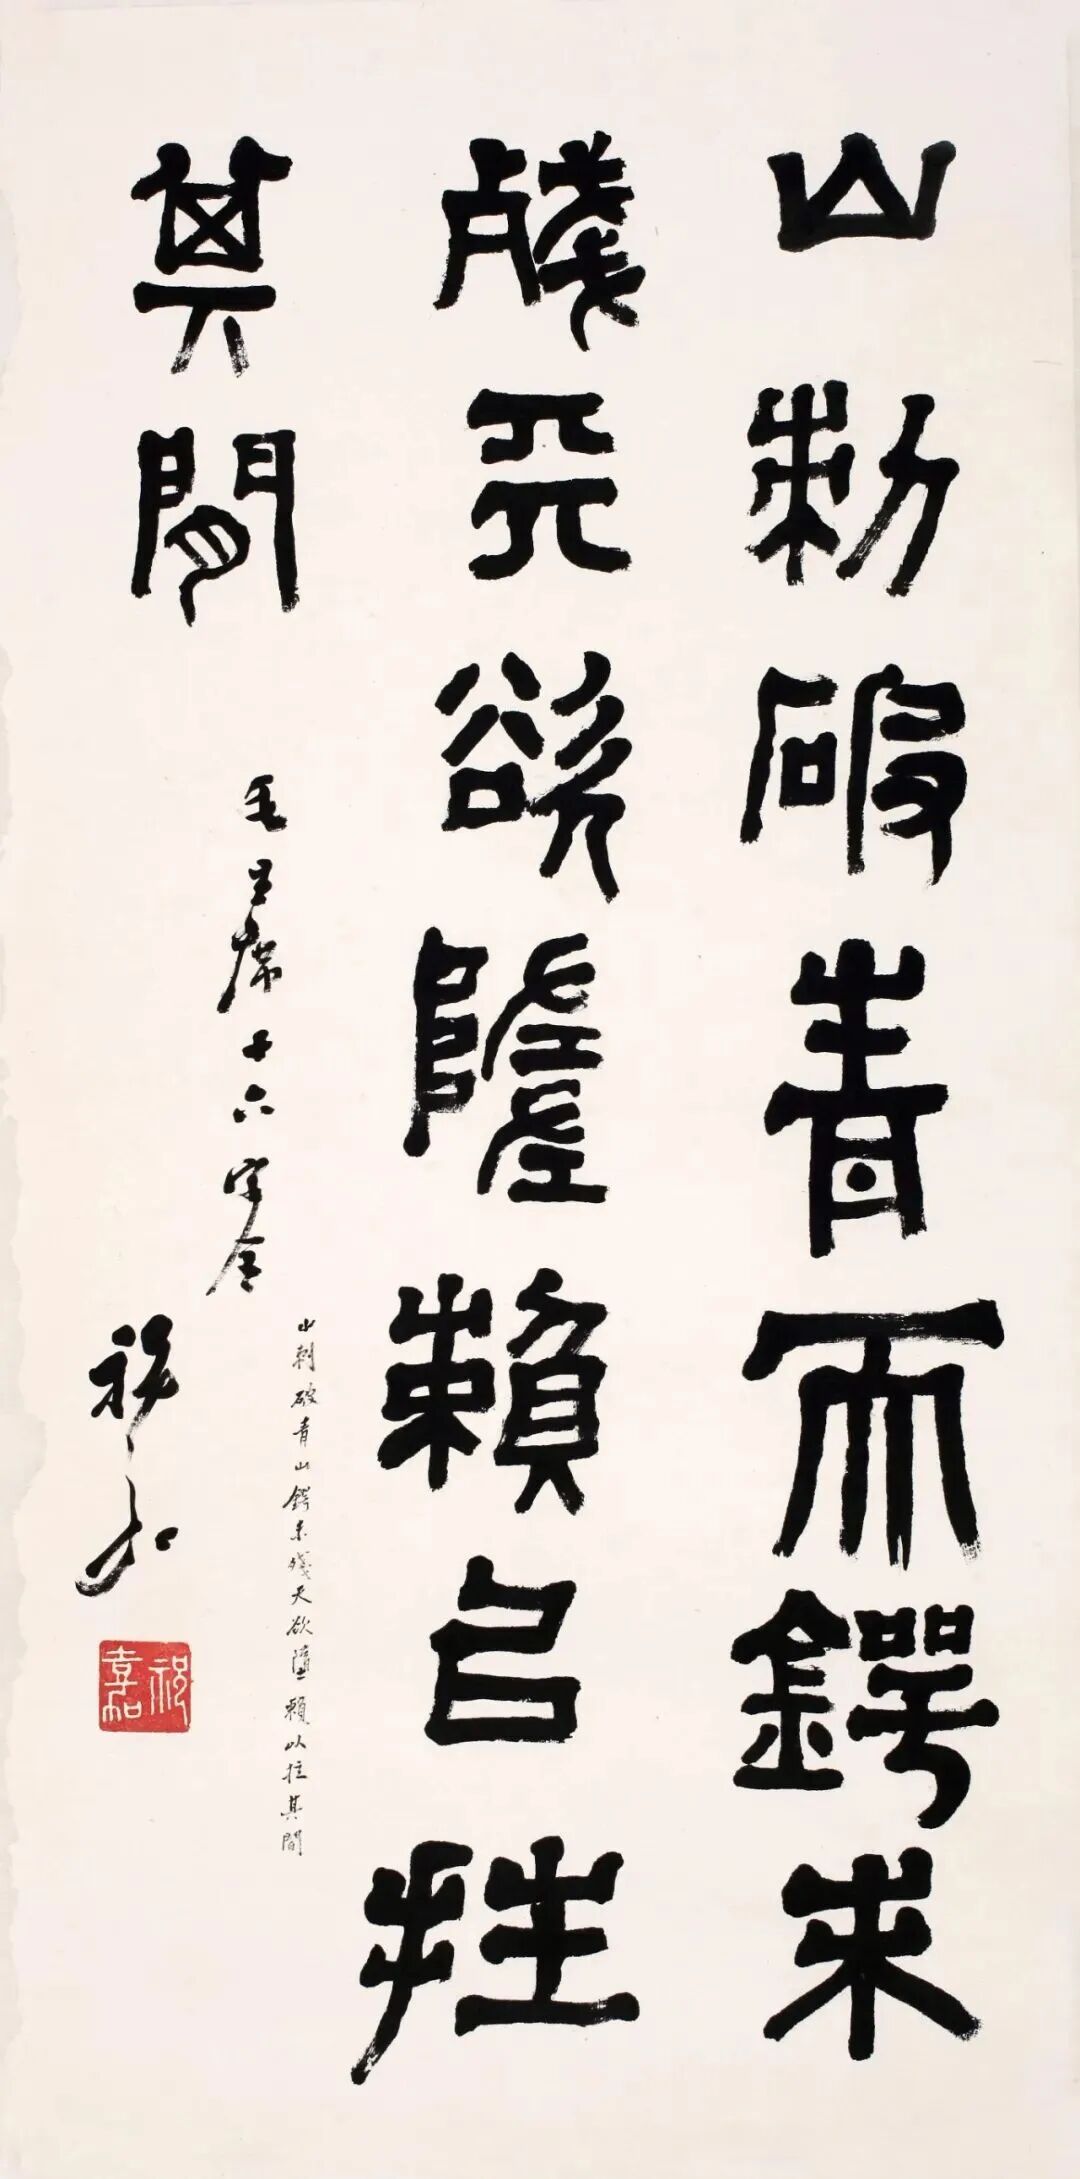 山刺破青天鍔未
殘天欲墮賴以拄
其間
毛主席十六字令
山刺破青山鍔未殘天欲墮賴以拄其間
祝嘉
祝嘉